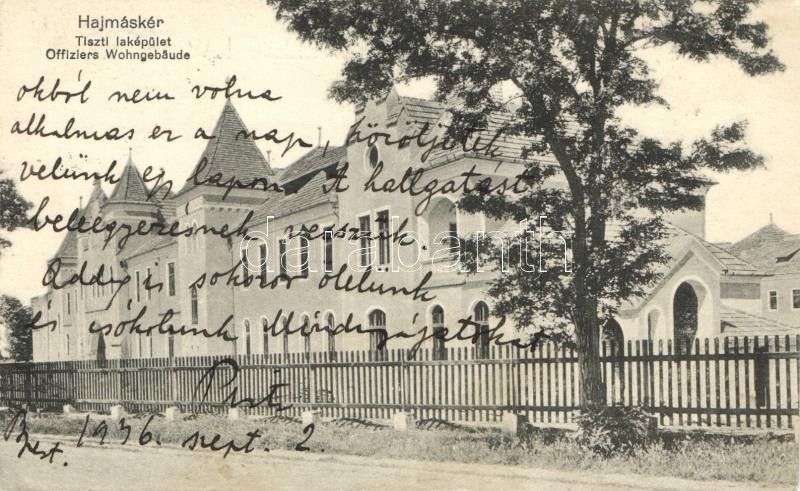 Hajmáskér
Tiszti laképület
Offiziers Wohngebäude
okból nem volna
alkalmas er a nap, köröljétek
velünk egy lapon. A hallgatást
beleegyezésnek vesszük.
Addig is sokszor ölelünk
és csókolunk Mindnyájatokat
Pista
Bpest. 1936. szept. 2.
darabanth